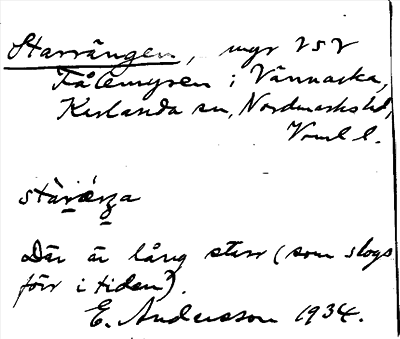 Starrängen, mgr VSV
Fålemyren i Vännacka,
Karlanda sn, Nordmarks hd,
Vrml l.
stàrǽŋa
Där är lång starr (som slogs
förr i tiden).
E. Andersson 1934.